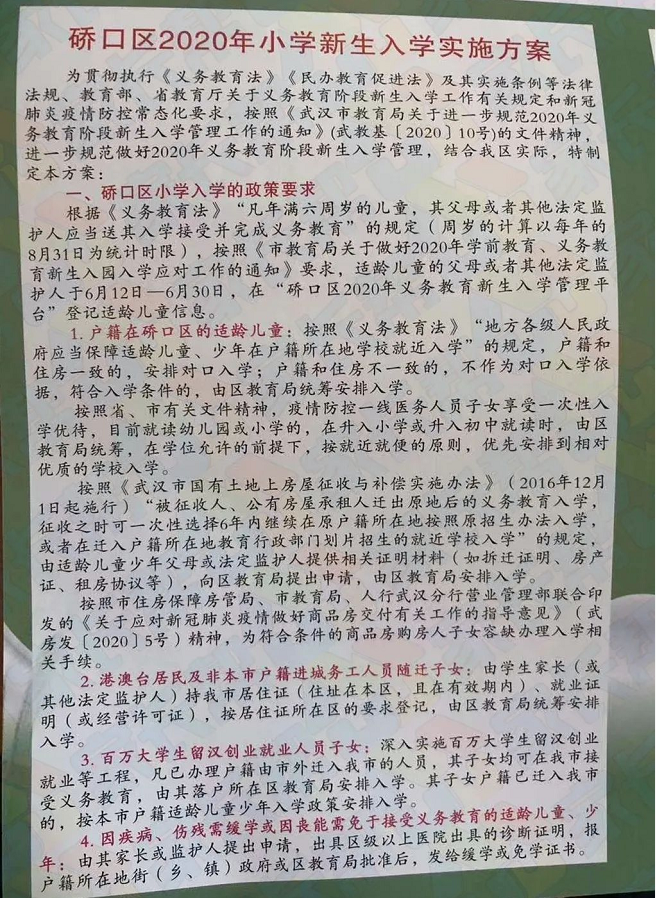 硚口区2020年小学新生入学实施方案
为贯彻执行《义务教育法》《民办教育促进法》及其实施条例等法律
法规、教育部、省教育厅关于义务教育阶段新生入学工作有关规定和新冠
肺炎疫情防控常态化要求，按照《武汉市教育局关于进一步规范2020年义
务教育阶段新生入学管理工作的通知》(武教基〔2020〕10号)的文件精神，
进一步规范做好2020年义务教育阶段新生入学管理，结合我区实际，特制
定本方案：
一、硚口区小学入学的政策要求
根据《义务教育法》“凡年满六周岁的儿童，其父母或者其他法定监
护人应当送其入学接受并完成义务教育”的规定（周岁的计算以每年的
8月31日为统计时限），按照《市教育局关于做好2020年学前教育、义务教
育新生入园入学应对工作的通知》要求，适龄儿童的父母或者其他法定监
护人于6月12日—6月30日，在“硚口区2020年义务教育新生入学管理平
台”登记适龄儿童信息。
1. 户籍在硚口区的适龄儿童：按照《义务教育法》“地方各级人民政
府应当保障适龄儿童、少年在户籍所在地学校就近入学”的规定，户籍和
住房一致的，安排对口入学；户籍和住房不一致的，不作为对口入学依
据，符合入学条件的，由区教育局统筹安排入学。
按照省、市有关文件精神，疫情防控一线医务人员子女享受一次性入
学优待，目前就读幼儿园或小学的，在升入小学或升入初中就读时，由区
教育局统筹，在学位允许的前提下，按就近就便的原则，优先安排到相对
优质的学校入学。
按照《武汉市国有土地上房屋征收与补偿实施办法》（2016年12月
1日起施行）“被征收人、公有房屋承租人迁出原地后的义务教育入学，
征收之时可一次性选择6年内继续在原户籍所在地按照原招生办法入学，
或者在迁入户籍所在地教育行政部门划片招生的就近学校入学”的规定，
由适龄儿童少年父母或法定监护人提供相关证明材料（如拆迁证明、房产
证、租房协议等），向区教育局提出申请，由区教育局安排入学。
按照市住房保障房管局、市教育局、人行武汉分行营业管理部联合印
发的《关于应对新冠肺炎疫情做好商品房交付有关工作的指导意见》（武
房发〔2020〕5号）精神，为符合条件的商品房购房人子女容缺办理入学相
关手续。
2. 港澳台居民及非本市户籍进城务工人员随迁子女：由学生家长（或
其他法定监护人）持我市居住证（住址在本区，且在有效期内）、就业证
明（或经营许可证），按居住证所在区的要求登记，由区教育局统筹安排
入学。
3. 百万大学生留汉创业就业人员子女：深入实施百万大学生留汉创业
就业等工程，凡已办理户籍由市外迁入我市的人员，其子女均可在我市接
受义务教育，由其落户所在区教育局安排入学。其子女户籍已迁入我市
的，按本市户籍适龄儿童少年入学政策安排入学。
4. 因疾病、伤残需缓学或因丧能需免于接受义务教育的适龄儿童、少
年：由其家长或监护人提出申请，出具区级以上医院出具的诊断证明，报
户籍所在地街（乡、镇）政府或区教育局批准后，发给缓学或免学证书。